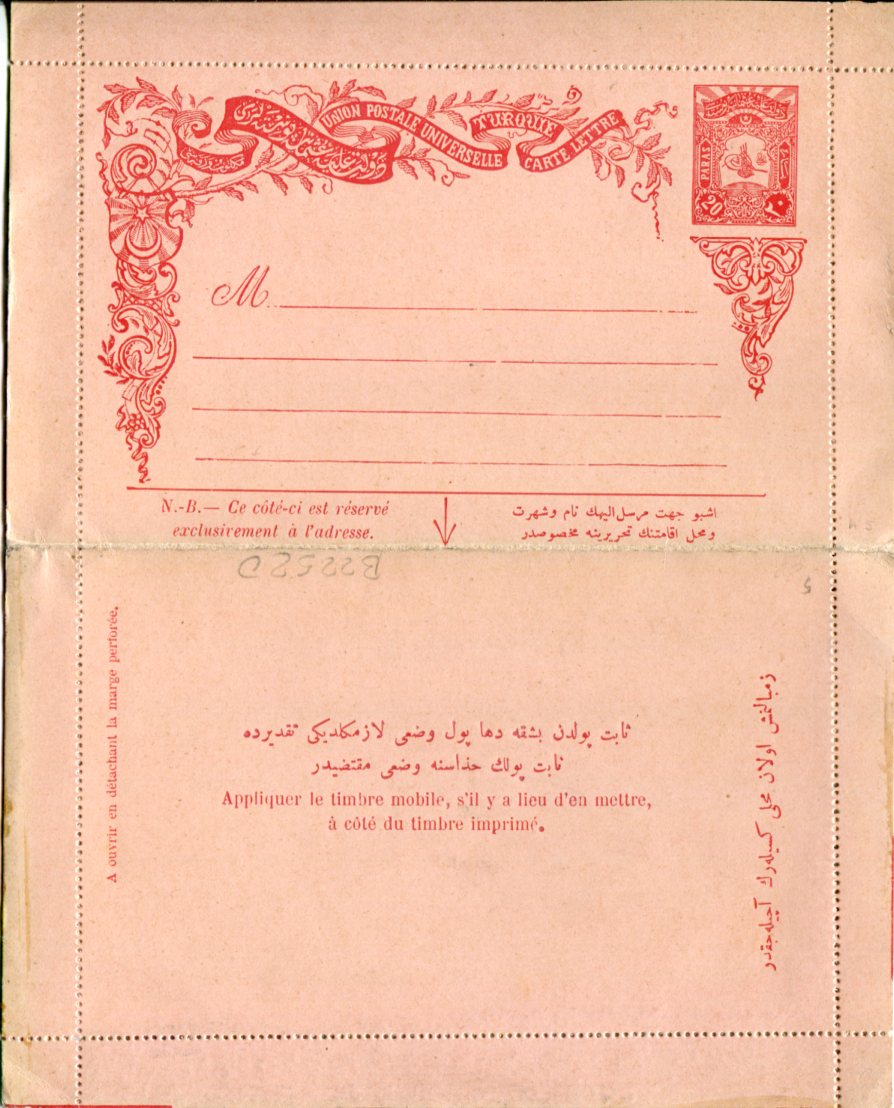 UNION POSTALE UNIVERSELLE
TURQUIE
CARTE LETTRE
PARAS
20
٢٠
M
N.-B.— Ce côté-ci est réservé
exclusivement à l'adresse.
اشبو جهت مرسل اليهك نام وشهرت
ومحل اقامتنك تحريرينه مخصوصدر
B2252D
A ouvrir en détachant la marge perforée.
ثابت پولدن بشقه دها پول وضعى لازمكلديكى تقديرده
ثابت پولك حذاسنه وضعى مقتضيدر
Appliquer le timbre mobile, s'il y a lieu d'en mettre,
à côté du timbre imprimé.
زمبالنمش اولان محلى كسيله‌رك آچيله‌جقدر